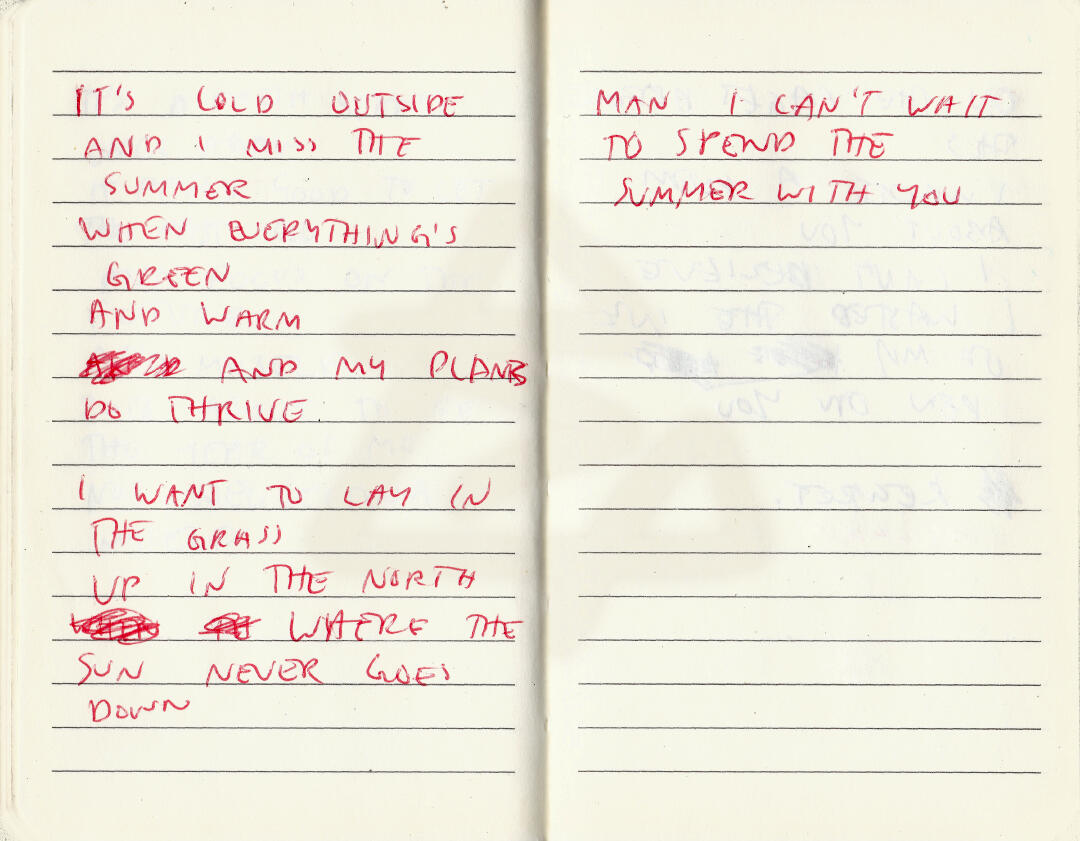 IT'S COLD OUTSIDE
AND I MISS THE
SUMMER
WHEN EVERYTHING'S
GREEN
AND WARM
AND MY PLANTS
DO THRIVE.
I WANT TO LAY IN
THE GRASS
UP IN THE NORTH
WHERE THE
SUN NEVER GOES
DOWN
MAN I CAN'T WAIT
TO SPEND THE
SUMMER WITH YOU